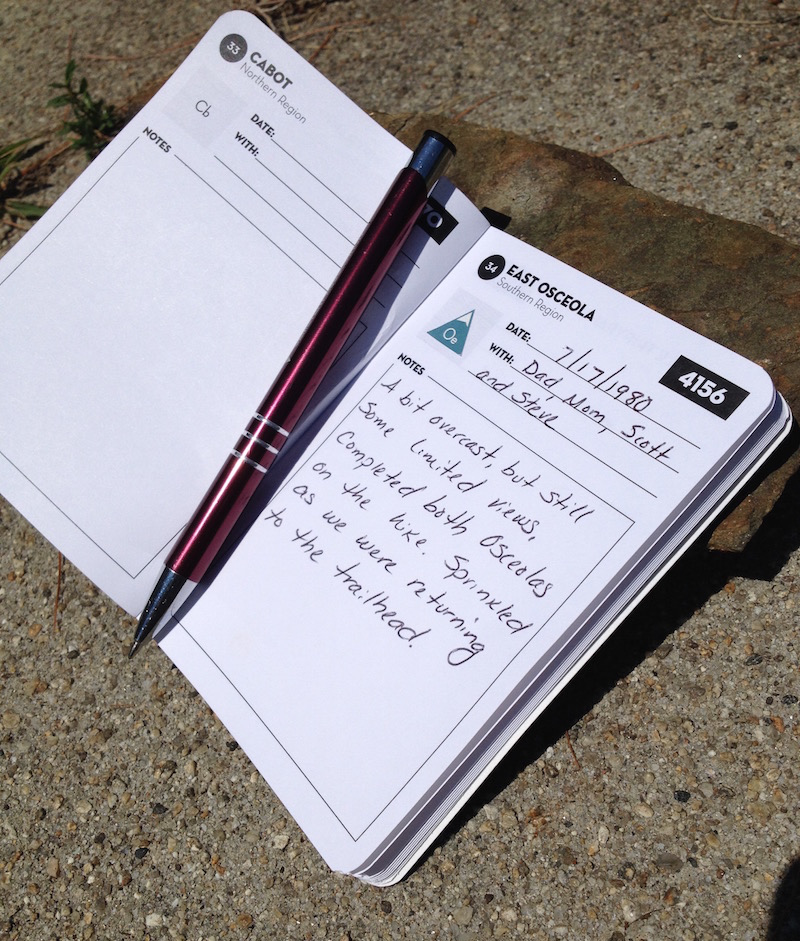 33 CABOT
Northern Region
Cb
DATE:
WITH:
NOTES
70
34 EAST OSCEOLA
Southern Region
Oe
DATE: 7/17/1980
WITH: Dad, Mom, Scott
and Steve
4156
NOTES
A bit overcast, but still
some limited views,
Completed both Osceolas
on the hike. Sprinkled
as we were returning
to the trailhead.